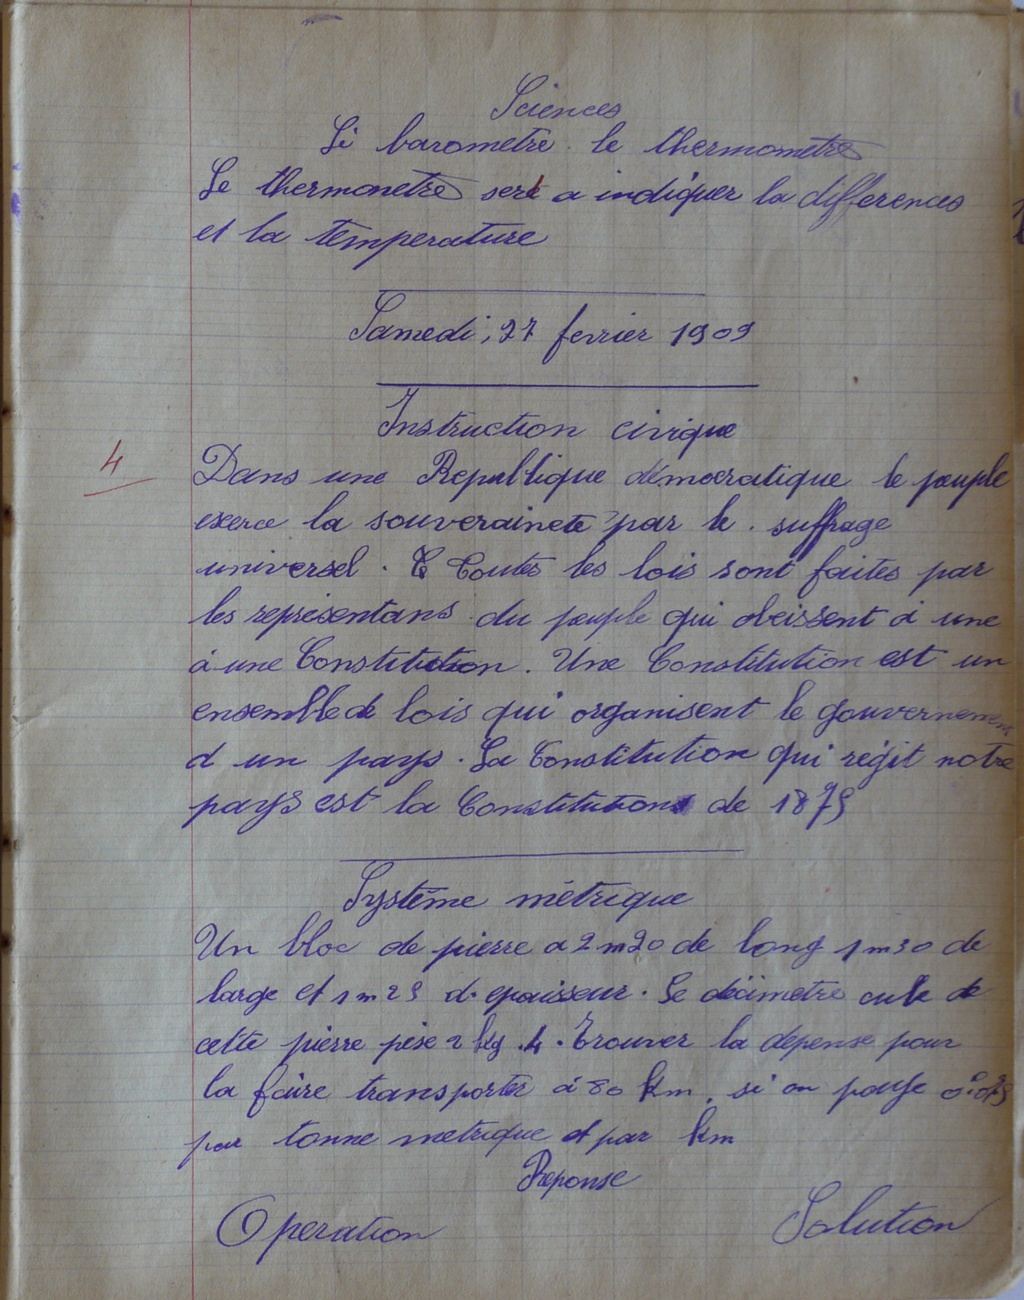 Sciences
Le barometre le thermometre
Le thermonetre sert a indiquer la differences
et la temperature
Samedi, 27 fevrier 1909
Instruction civique
4
Dans une Republique démocratique le peuple
exerce la souverainete par le . suffrage
universel . T Toutes les lois sont faites par
les représentans du peuple qui obeissent à une
à une Constitution . Une Constitution est un
ensemble de lois qui organisent le gouvernement
d un pays . La Constitution qui régit notre
pays est la Constitution de 1875
Système métrique
Un bloc de pierre a 2 m 20 de long 1 m 30 de
large et 1 m 25 d. epaisseur . Le décimetre cube de
cette pierre pèse 2 kg . 4 . Trouver la depense pour
la faire transporter à 80 km , si on paye
par tonne metrique et par km
Reponse
Operation Solution